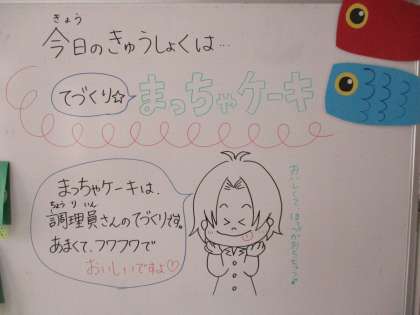 きょう
今日のきゅうしょくは…
てづくり☆
まっちゃケーキ
まっちゃケーキは、
ちょうりいん
調理員さんのてづくりです。
あまくて、フワフワで
おいしいですよ♡
おいしくて、ほっぺがおちちゃう♪